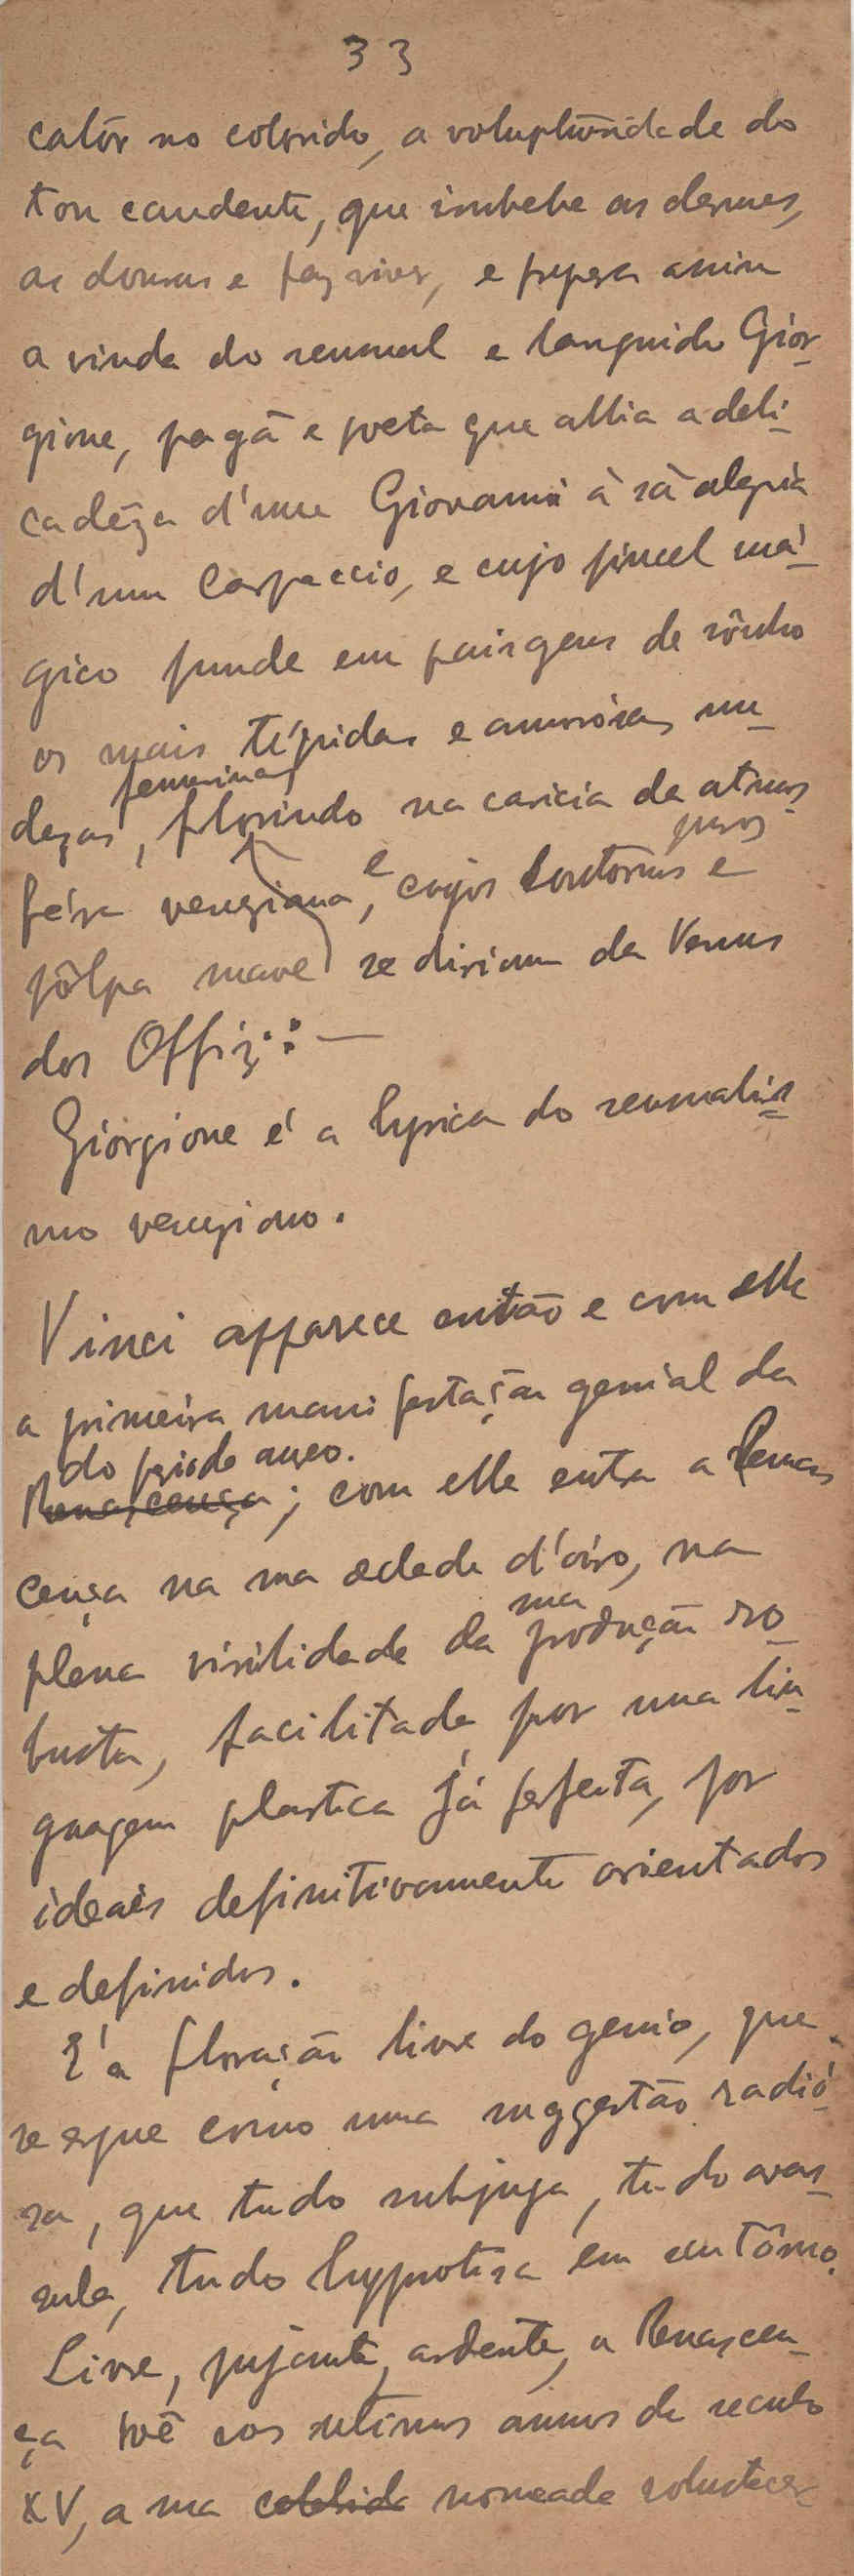 33
calôr no colorido, a voluptuósidade do
ton candente, que imbebe as carnes,
as doura e faz viver, e prepara assim
a vinda do sensual e languido Giór-
gione, pagã e poeta que allia a deli-
cadêza d'um Giovanni á sã alegria
d'um Carpaccio, e cujo pincel má-
gico funde em paisagens de sônho
as mais tépidas e amorósas nu-
femininas
dezas, florindo na caricia da atmos
puros
féra veneziana, e cujos contornos e
pôlpa suave se diriam da Venus
dos Offizi: —
Giorgione é a lyrica do sensualis-
mo veneziano.
Vinci apparece então e com elle
a primeira manifestação genial da
do periodo aureo.
Renascença; com elle entra a Renas
cença na sua edade d'oiro, na
sua
plena virilidade da produção ro-
busta, facilitada por uma lin-
guagem plastica já perfeita, por
ideaes definitivamente orientados
e definidos.
É a floração livre do genio, que
se ergue como uma suggestão radió-
sa, que tudo subjuga, tudo avas-
sala, tudo hypnotisa em seu tôrno.
Livre, pujante, ardente, a Renascen-
ça vê nos ultimos annos do seculo
XV, a sua nomeada robustecer